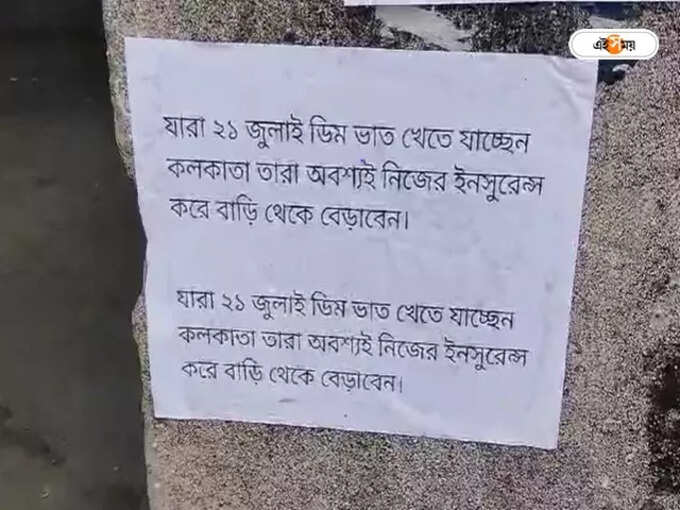 এই সময়
যারা ২১ জুলাই ডিম ভাত খেতে যাচ্ছেন
কলকাতা তারা অবশ্যই নিজের ইনসুরেন্স
করে বাড়ি থেকে বেড়াবেন।
যারা ২১ জুলাই ডিম ভাত খেতে যাচ্ছেন
কলকাতা তারা অবশ্যই নিজের ইনসুরেন্স
করে বাড়ি থেকে বেড়াবেন।